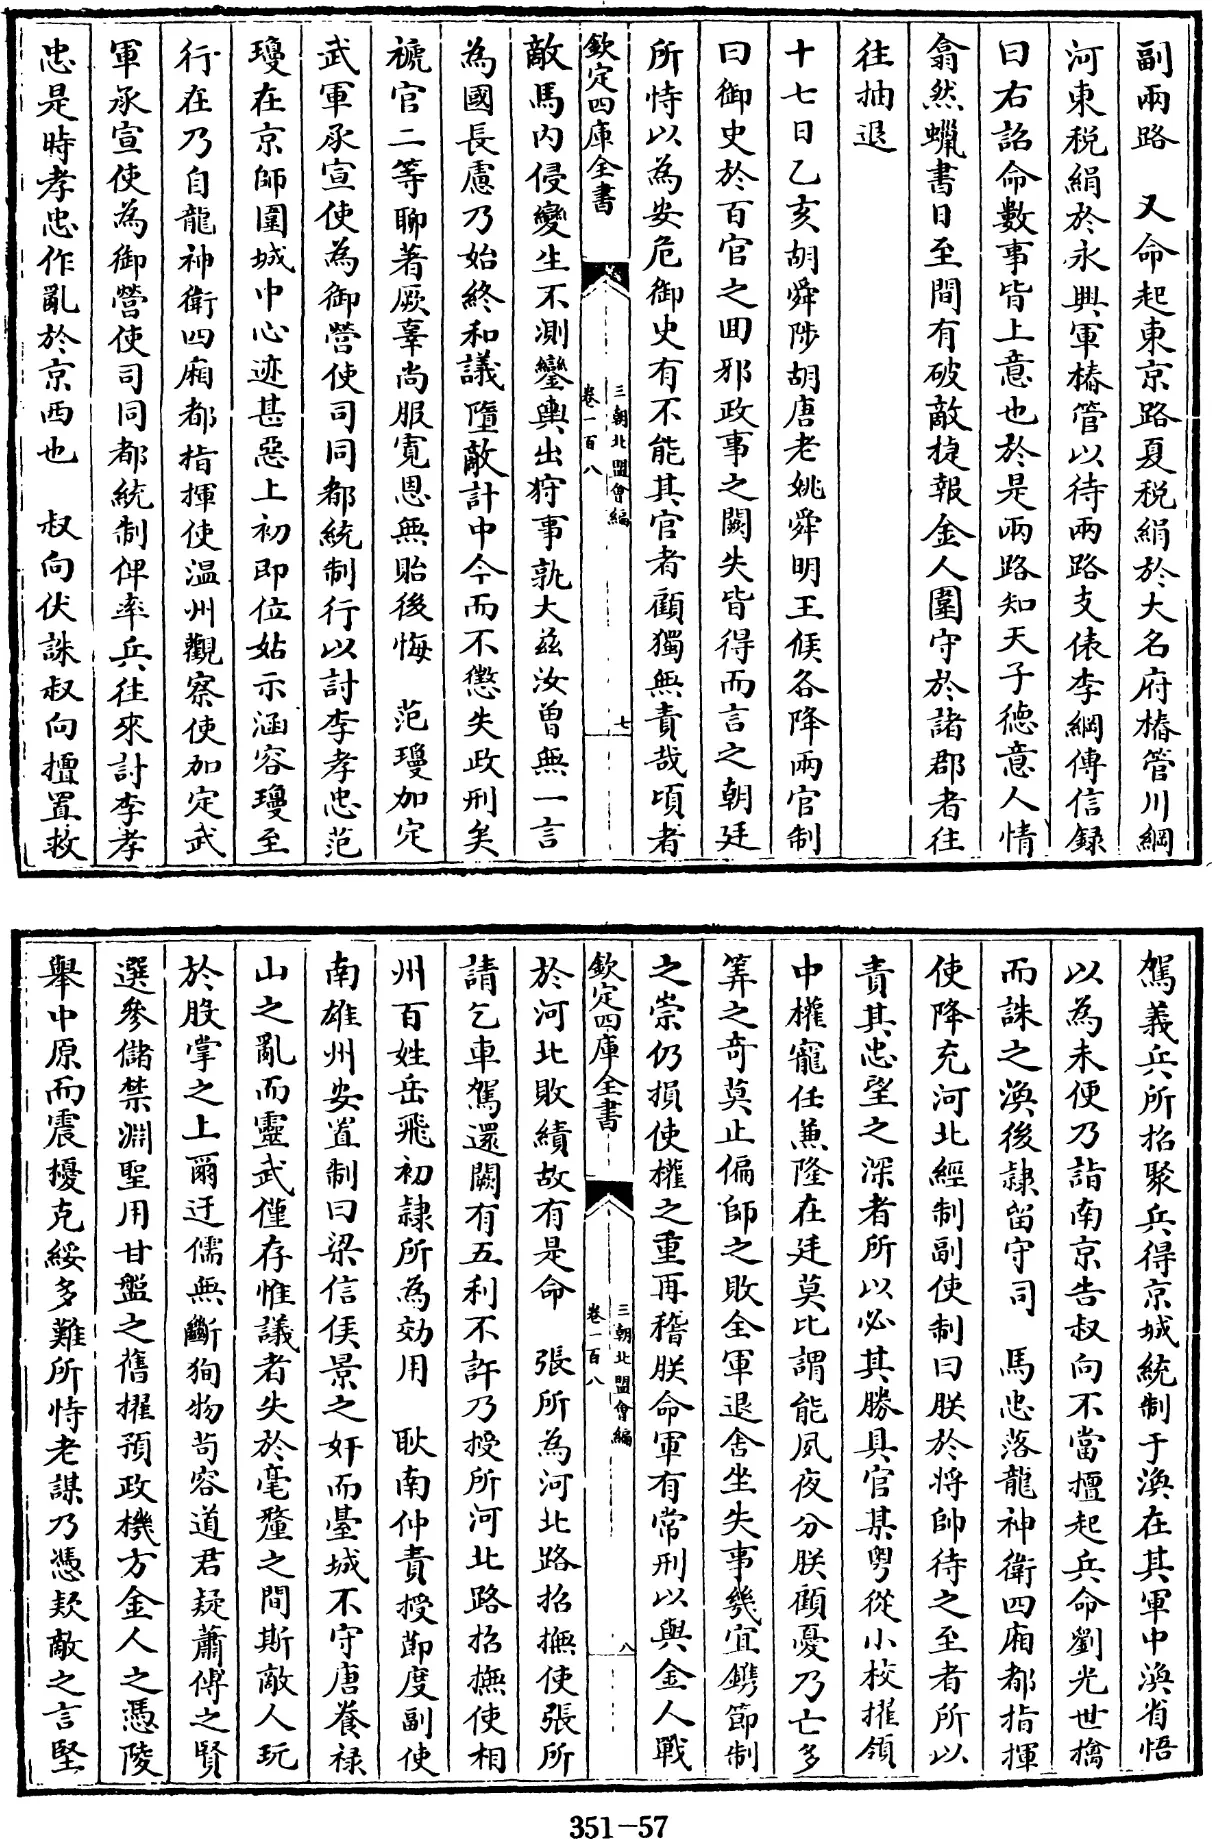 副兩路　又命起東京路夏税絹於大名府樁管川綱
河東税絹於永興軍樁管以待兩路支俵李綱傳信録
曰右詔命數事皆上意也於是兩路知天子德意人情
翕然蠟書日至間有破敵捷報金人圍守於諸郡者往
往抽退
十七日乙亥胡舜陟胡唐老姚舜明王俁各降兩官制
曰御史於百官之回邪政事之闕失皆得而言之朝廷
所恃以為安危御史有不能其官者顧獨無責哉頃者
欽定四庫全書
三朝北盟會編
卷一百八
七
敵馬内侵變生不測鑾輿出狩事孰大兹汝曾無一言
為國長慮乃始終和議墮敵計中今而不懲失政刑矣
褫官二等聊著厥辜尚服寛恩無貽後悔　范瓊加定
武軍承宣使為御營使司同都統制行以討李孝忠范
瓊在京師圍城中心迹甚惡上初即位姑示涵容瓊至
行在乃自龍神衛四廂都指揮使温州觀察使加定武
軍承宣使為御營使司同都統制俾率兵往來討李孝
忠是時孝忠作亂於京西也　叔向伏誅叔向擅置救
駕義兵所招聚兵得京城統制于渙在其軍中渙省悟
以為未便乃詣南京告叔向不當擅起兵命劉光世擒
而誅之渙後隷留守司　馬忠落龍神衛四廂都指揮
使降充河北經制副使制曰朕於將帥待之至者所以
責其忠望之深者所以必其勝具官某粤從小校擢領
中權寵任兼隆在廷莫比謂能夙夜分朕顧憂乃亡多
筭之奇莫止偏師之敗全軍退舍坐失事幾宜鐫節制
之崇仍損使權之重再稽朕命軍有常刑以與金人戰
欽定四庫全書
三朝北盟會編
卷一百八
八
於河北敗績故有是命　張所為河北路招撫使張所
請乞車駕還闕有五利不許乃授所河北路招撫使相
州百姓岳飛初隷所為効用　耿南仲責授節度副使
南雄州安置制曰梁信侯景之奸而臺城不守唐養禄
山之亂而靈武僅存惟議者失於毫釐之間斯敵人玩
於股掌之上爾迂儒無斷狥物苟容道君疑蕭傅之賢
選參儲禁淵聖用甘盤之舊擢預政機方金人之憑陵
舉中原而震擾克綏多難所恃老謀乃憑欵敵之言堅
351—57